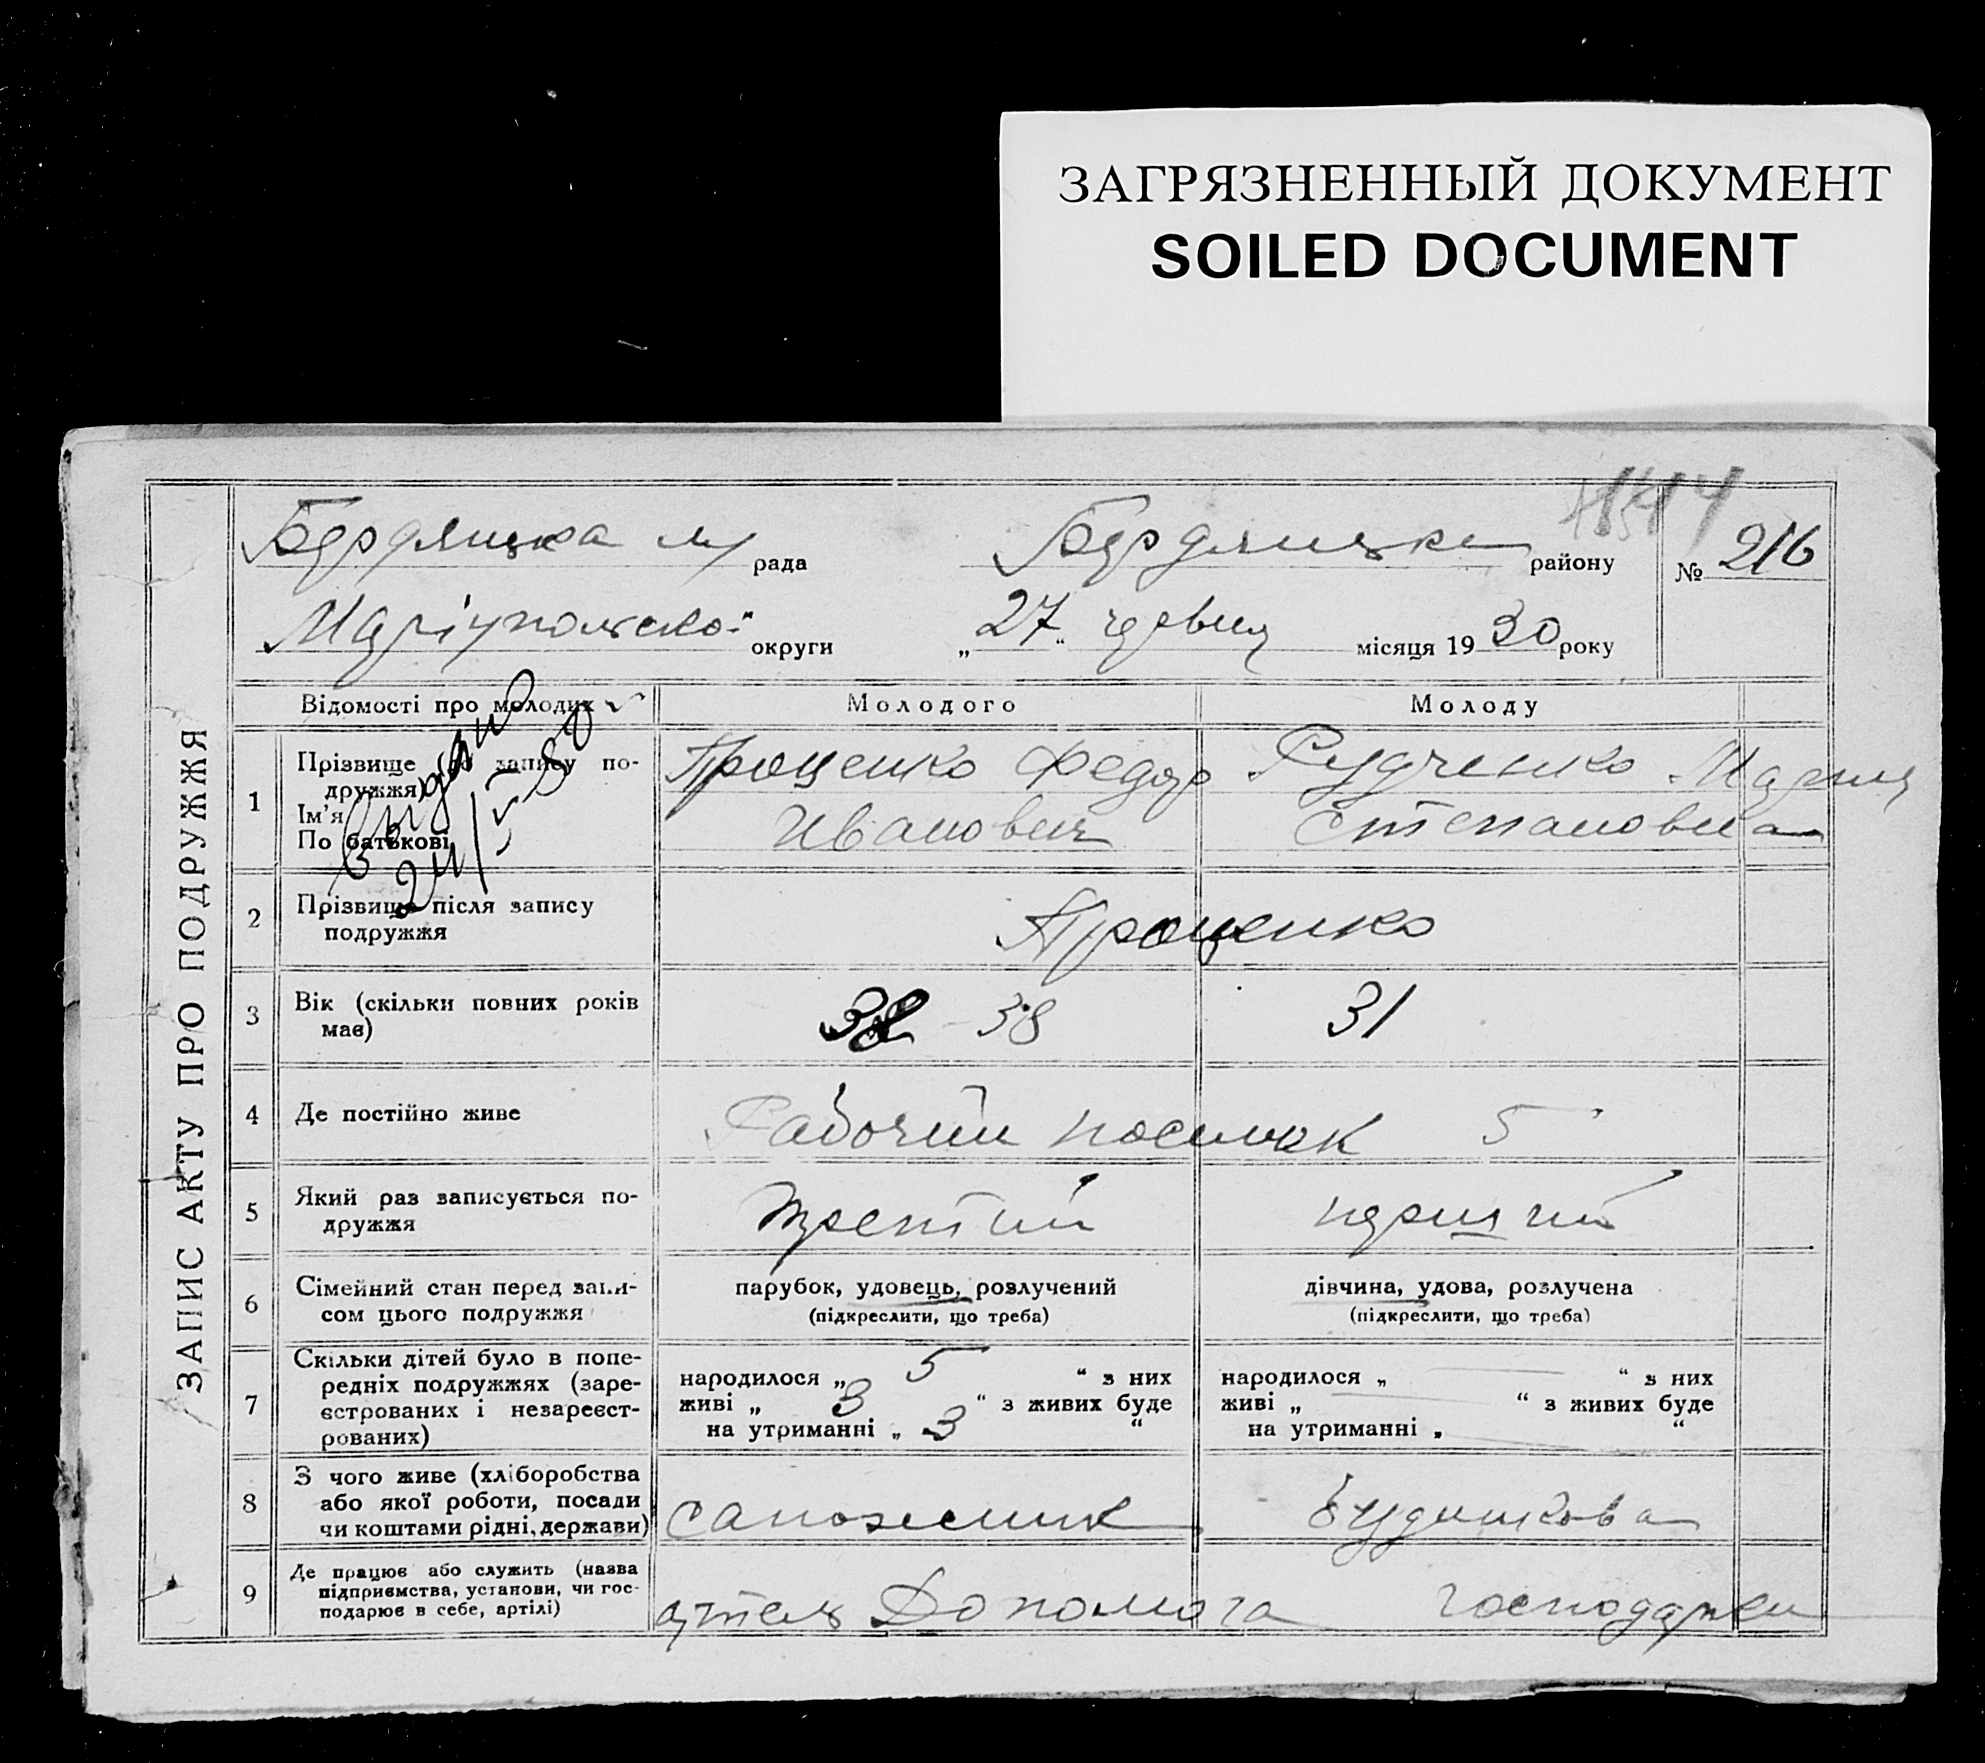 ЗАГРЯЗНЕННЫЙ ДОКУМЕНТ
SOILED DOCUMENT
ЗАПИС АКТУ ПРО ПОДРУЖЖЯ
Бердянська м/рада Бердянське району № 216
Маріупольської округи „27“ червня місяця 1930 року
Відомості про молодих Молодого Молоду
1 Прізвище (до запису по-
дружжя)
Ім'я
По батькові
Проценко Федор
Иванович
Рудченко Мария
Степановна
2 Прізвище після запису
подружжя
Проценко
3 Вік (скільки повних років
має)
38 - 38 31
4 Де постійно живе
Рабочий поселок 5
5 Який раз записується по-
дружжя
третий перший
6 Сімейний стан перед запи-
сом цього подружжя
парубок, удовець, розлучений
(підкреслити, що треба)
дівчина, удова, розлучена
(підкреслити, що треба)
7 Скільки дітей було в попе-
редніх подружжях (заре-
єстрованих і незареєст-
рованих)
народилося „ 5 “ з них
живі „ 3 “ з живих буде
на утриманні „ 3 “
народилося „ “ з них
живі „ “ з живих буде
на утриманні „ “
8 З чого живе (хліборобства
або якої роботи, посади
чи коштами рідні, держави)
сапожник
9 Де працює або служить (назва
підприємства, установи, чи гос-
подарює в себе, артілі)
артель Допомога